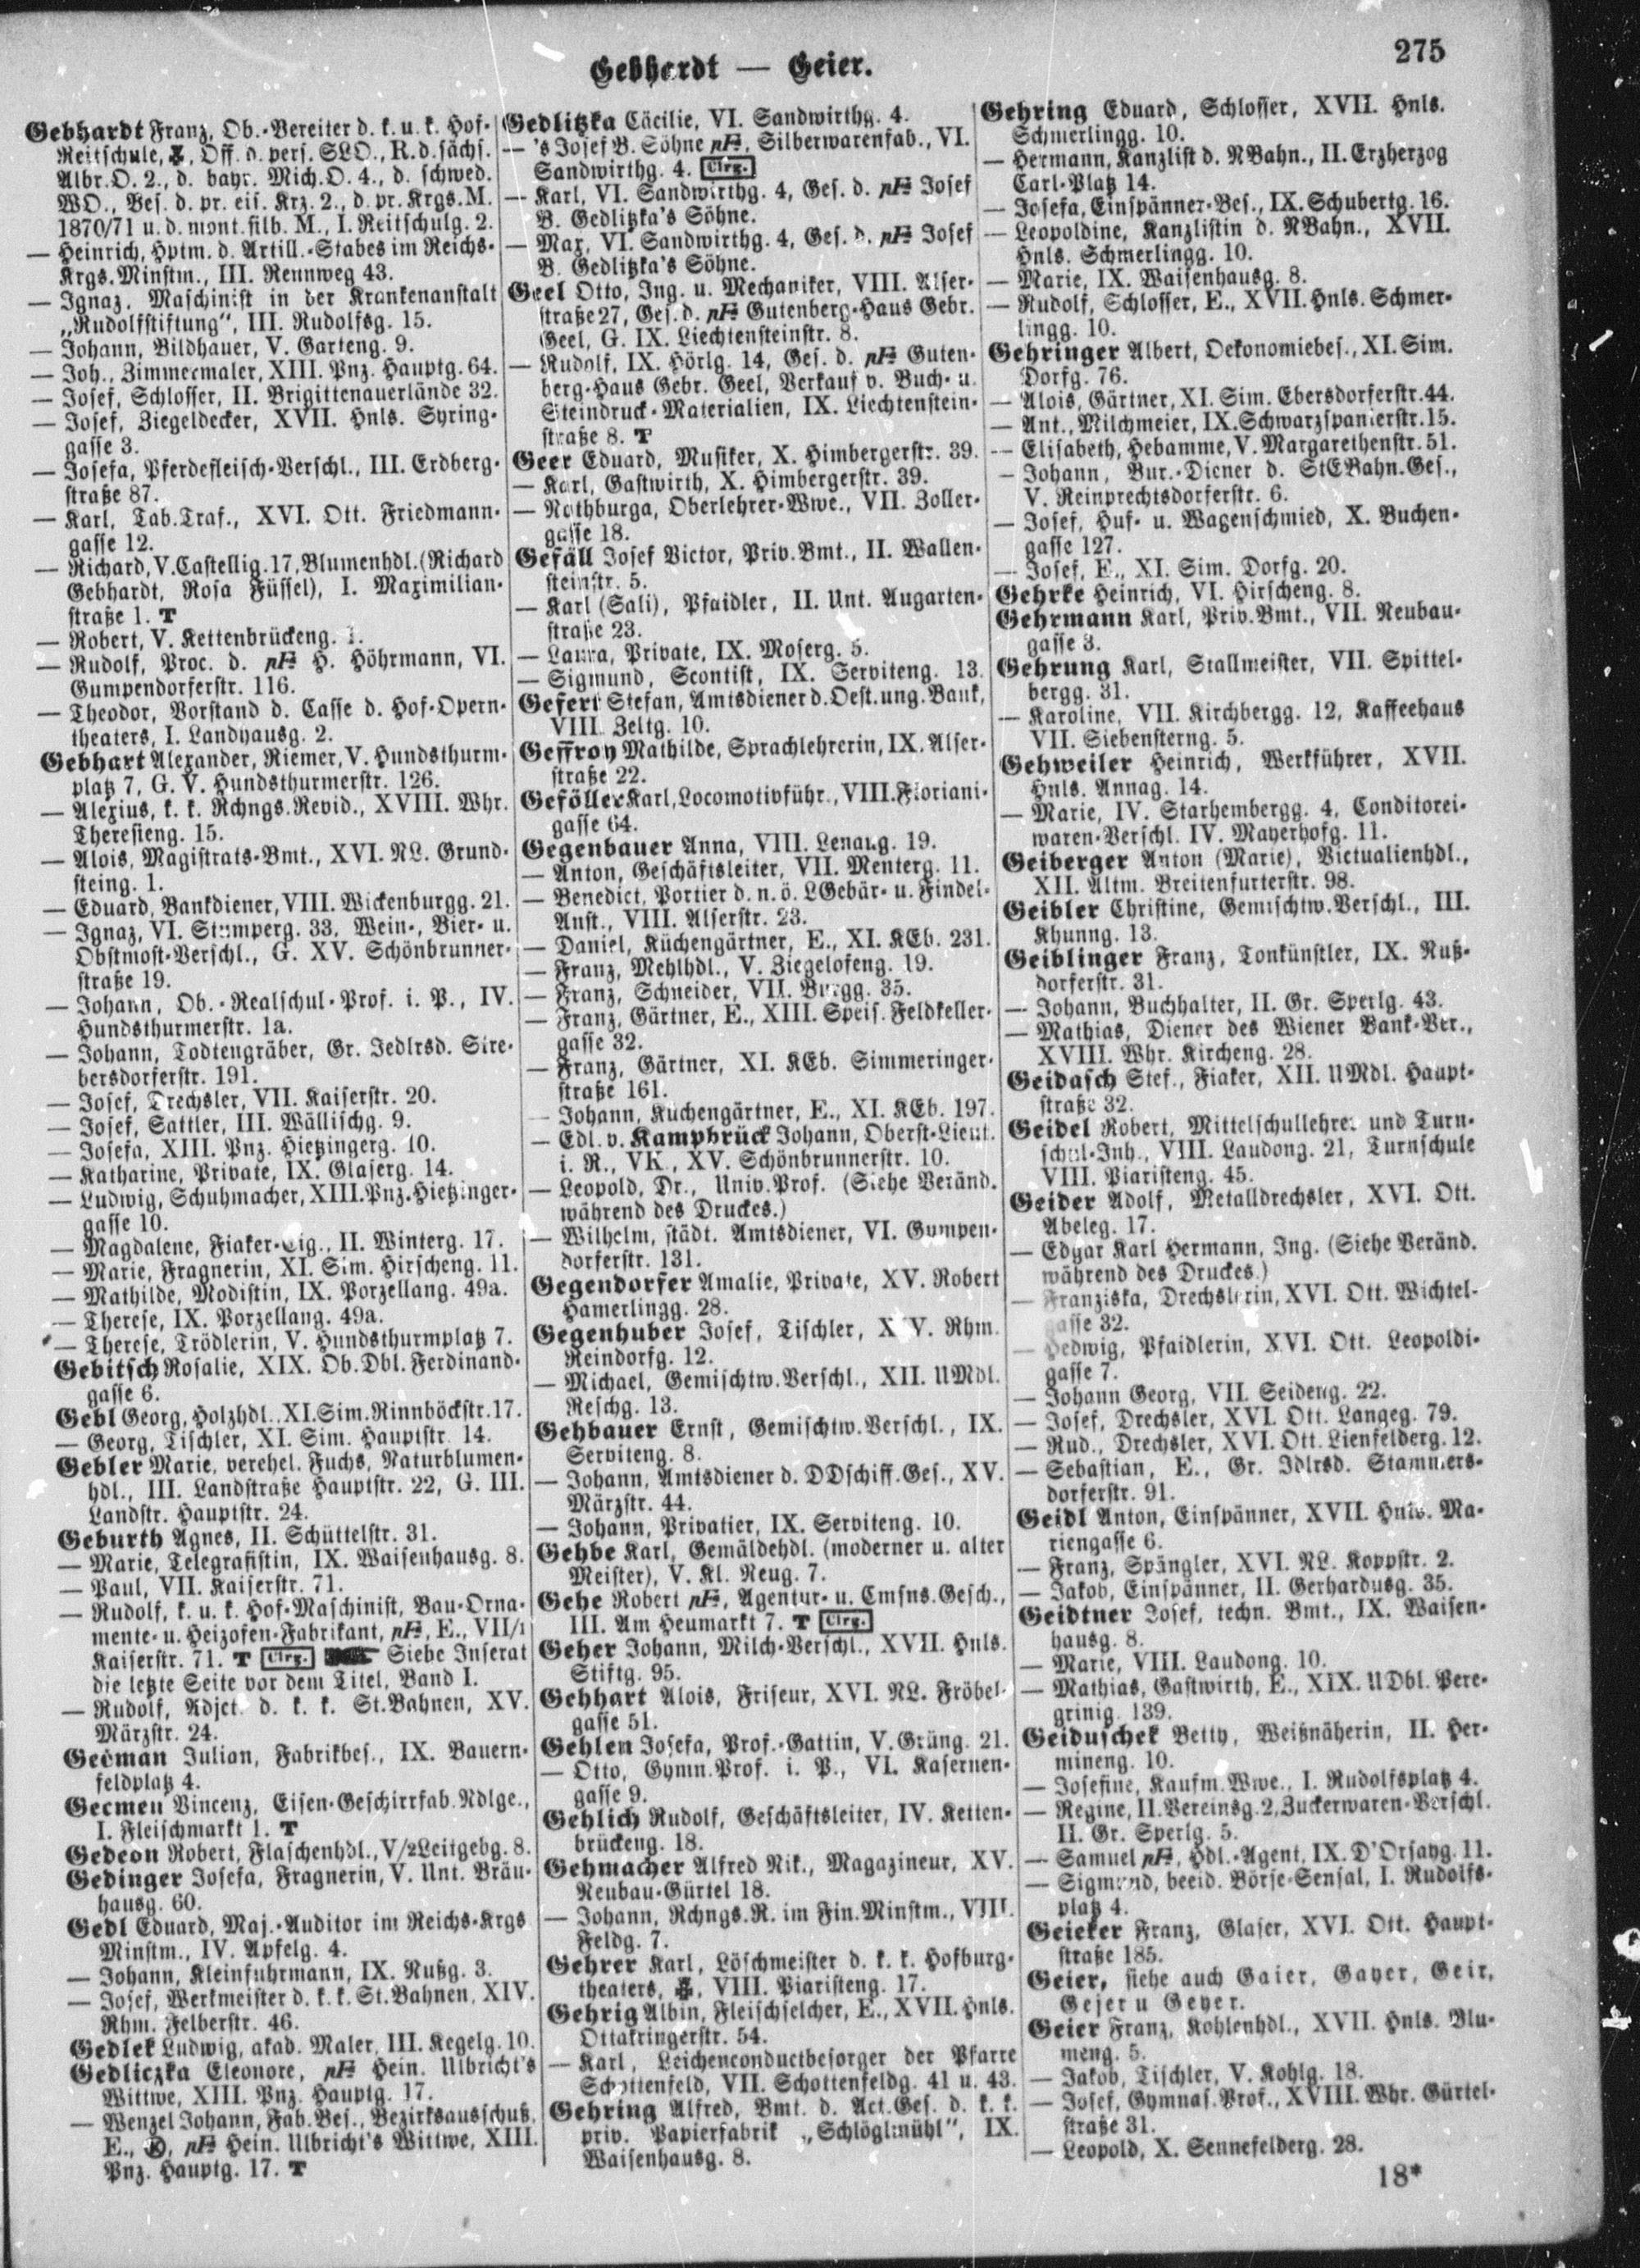 275
Gebhardt — Geier.
Gebhardt Franz, Ob.-Bereiter d. k. u. k. Hof-
Reitschule, Off. d. pers. SLO., R. d. sächs.
Albr.O. 2., d. bayr. Mich.O. 4., d. schwed.
WO., Bes. d. pr. eis. Krz. 2., d. pr. Krgs.M.
1870/71 u. d. mont. silb. M., I. Reitschulg. 2.
— Heinrich, Hptm. d. Artill.-Stabes im Reichs-
Krgs.Minstm., III. Rennweg 43.
— Ignaz, Maschinist in der Krankenanstalt
„Rudolfstiftung“, III. Rudolfsg. 15.
— Johann, Bildhauer, V. Garteng. 9.
— Joh., Zimmermaler, XIII. Pnz. Hauptg. 64.
— Josef, Schlosser, II. Brigittenauerlände 32.
— Josef, Ziegeldecker, XVII. Hnls. Syring-
gasse 3.
— Josefa, Pferdefleisch-Verschl., III. Erdberg-
straße 87.
— Karl, Tab.Traf., XVI. Ott. Friedmann-
gasse 12.
— Richard, V. Castellig. 17, Blumenhdl. (Richard
Gebhardt, Rosa Füssel), I. Maximilian-
straße 1. T
— Robert, V. Kettenbrückeng. 1.
— Rudolf, Proc. d. pF H. Höhrmann, VI.
Gumpendorferstr. 116.
— Theodor, Vorstand d. Casse d. Hof-Opern-
theaters, I. Landhausg. 2.
Gebhart Alexander, Riemer, V. Hundsthurm-
platz 7, G. V. Hundsthurmerstr. 126.
— Alexius, k. k. Rchngs.Revid., XVIII. Whr.
Theresieng. 15.
— Alois, Magistrats-Bmt., XVI. NL. Grund-
steing. 1.
— Eduard, Bankdiener, VIII. Wickenburgg. 21.
— Ignaz, VI. Stumperg. 33, Wein-, Bier- u.
Obstmost-Verschl., G. XV. Schönbrunner-
straße 19.
— Johann, Ob.-Realschul-Prof. i. P., IV.
Hundsthurmerstr. 1a.
— Johann, Todtengräber, Gr. Jedlrsd. Stre-
bersdorferstr. 191.
— Josef, Drechsler, VII. Kaiserstr. 20.
— Josef, Sattler, III. Wällischg. 9.
— Josefa, XIII. Pnz. Hietzingerg. 10.
— Katharine, Private, IX. Glaserg. 14.
— Ludwig, Schuhmacher, XIII. Pnz. Hietzinger-
gasse 10.
— Magdalene, Fiaker-Eig., II. Winterg. 17.
— Marie, Fragnerin, XI. Sim. Hirscheng. 11.
— Mathilde, Modistin, IX. Porzellang. 49a.
— Therese, IX. Porzellang. 49a.
— Therese, Trödlerin, V. Hundsthurmplatz 7.
Gebitsch Rosalie, XIX. Ob.Dbl. Ferdinand-
gasse 6.
Gebl Georg, Holzhdl., XI. Sim. Rinnböckstr. 17.
— Georg, Tischler, XI. Sim. Hauptstr. 14.
Gebler Marie, verehel. Fuchs, Naturblumen-
hdl., III. Landstraße Hauptstr. 22, G. III.
Landstr. Hauptstr. 24.
Geburth Agnes, II. Schüttelstr. 31.
— Marie, Telegrafistin, IX. Waisenhausg. 8.
— Paul, VII. Kaiserstr. 71.
— Rudolf, k. u. k. Hof-Maschinist, Bau-Orna-
mente- u. Heizofen-Fabrikant, pF, E., VII/1
Kaiserstr. 71. T Clrg. Siehe Inserat
die letzte Seite vor dem Titel, Band I.
— Rudolf, Adjct. d. k. k. St.Bahnen, XV.
Märzstr. 24.
Gečman Julian, Fabrikbes., IX. Bauern-
feldplatz 4.
Gecmen Vincenz, Eisen-Geschirrfab.Ndlge.,
I. Fleischmarkt 1. T
Gedeon Robert, Flaschenhdl., V/2 Leitgebg. 8.
Gedinger Josefa, Fragnerin, V. Unt. Bräu-
hausg. 60.
Gedl Eduard, Maj.-Auditor im Reichs-Krgs
Minstm., IV. Apfelg. 4.
— Johann, Kleinfuhrmann, IX. Nußg. 3.
— Josef, Werkmeister d. k. k. St.Bahnen, XIV.
Rhm. Felberstr. 46.
Gedlek Ludwig, akad. Maler, III. Kegelg. 10.
Gedliczka Eleonore, pF Hein. Ulbricht's
Wittwe, XIII. Pnz. Hauptg. 17.
— Wenzel Johann, Fab.Bes., Bezirksausschuß,
E., K, pF Hein. Ulbricht's Wittwe, XIII.
Pnz. Hauptg. 17. T
Gedlitzka Cäcilie, VI. Sandwirthg. 4.
— 's Josef B. Söhne pF, Silberwarenfab., VI.
Sandwirthg. 4. Clrg.
— Karl, VI. Sandwirthg. 4, Ges. d. pF Josef
B. Gedlitzka's Söhne.
— Max, VI. Sandwirthg. 4, Ges. d. pF Josef
B. Gedlitzka's Söhne.
Geel Otto, Ing. u. Mechaniker, VIII. Alser-
straße 27, Ges. d. pF Gutenberg-Haus Gebr.
Geel, G. IX. Liechtensteinstr. 8.
— Rudolf, IX. Hörlg. 14, Ges. d. pF Guten-
berg-Haus Gebr. Geel, Verkauf v. Buch- u.
Steindruck-Materialien, IX. Liechtenstein-
straße 8. T
Geer Eduard, Musiker, X. Himbergerstr. 39.
— Karl, Gastwirth, X. Himbergerstr. 39.
— Nothburga, Oberlehrer-Wwe., VII. Zoller-
gasse 18.
Gefäll Josef Victor, Priv.Bmt., II. Wallen-
steinstr. 5.
— Karl (Sali), Pfaidler, II. Unt. Augarten-
straße 23.
— Laura, Private, IX. Moserg. 5.
— Sigmund, Scontist, IX. Serviteng. 13.
Gefert Stefan, Amtsdiener d. Oest.ung. Bank,
VIII. Zeltg. 10.
Geffroy Mathilde, Sprachlehrerin, IX. Alser-
straße 22.
Geföller Karl, Locomotivführ., VIII. Floriani-
gasse 64.
Gegenbauer Anna, VIII. Lenaug. 19.
— Anton, Geschäftsleiter, VII. Menterg. 11.
— Benedict, Portier d. n. ö. LGebär- u. Findel-
Anst., VIII. Alserstr. 23.
— Daniel, Küchengärtner, E., XI. KEb. 231.
— Franz, Mehlhdl., V. Ziegelofeng. 19.
— Franz, Schneider, VII. Burgg. 35.
— Franz, Gärtner, E., XIII. Speis. Feldkeller-
gasse 32.
— Franz, Gärtner, XI. KEb. Simmeringer-
straße 161.
— Johann, Küchengärtner, E., XI. KEb. 197.
— Edl. v. Kampbrück Johann, Oberst-Lieut.
i. R., VK., XV. Schönbrunnerstr. 10.
— Leopold, Dr., Univ.Prof. (Siehe Veränd.
während des Druckes.)
— Wilhelm, städt. Amtsdiener, VI. Gumpen-
dorferstr. 131.
Gegendorfer Amalie, Private, XV. Robert
Hamerlingg. 28.
Gegenhuber Josef, Tischler, Rhm.
Reindorfg. 12.
— Michael, Gemischtw.Verschl., XII. UMdl.
Reschg. 13.
Gehbauer Ernst, Gemischtw.Verschl., IX.
Serviteng. 8.
— Johann, Amtsdiener d. DDschiff.Ges., XV.
Märzstr. 44.
— Johann, Privatier, IX. Serviteng. 10.
Gehbe Karl, Gemäldehdl. (moderner u. alter
Meister), V. Kl. Neug. 7.
Gehe Robert pF, Agentur- u. Cmsns.Gesch.,
III. Am Heumarkt 7. T Clrg.
Geher Johann, Milch-Verschl., XVII. Hnls.
Stiftg. 95.
Gehhart Alois, Friseur, XVI. NL. Fröbel-
gasse 51.
Gehlen Josefa, Prof.-Gattin, V. Grüng. 21.
— Otto, Gymn.Prof. i. P., VI. Kasernen-
gasse 9.
Gehlich Rudolf, Geschäftsleiter, IV. Ketten-
brückeng. 18.
Gehmacher Alfred Nik., Magazineur, XV.
Neubau-Gürtel 18.
— Johann, Rchngs.R. im Fin.Minstm., VIII.
Feldg. 7.
Gehrer Karl, Löschmeister d. k. k. Hofburg-
theaters, VIII. Piaristeng. 17.
Gehrig Albin, Fleischselcher, E., XVII. Hnls.
Ottakringerstr. 54.
— Karl, Leichenconductbesorger der Pfarre
Schottenfeld, VII. Schottenfeldg. 41 u. 43.
Gehring Alfred, Bmt. d. Act.Ges. d. k. k.
priv. Papierfabrik „Schlöglmühl“, IX.
Waisenhausg. 8.
Gehring Eduard, Schlosser, XVII. Hnls.
Schmerlingg. 10.
— Hermann, Kanzlist d. NBahn., II. Erzherzog
Carl-Platz 14.
— Josefa, Einspänner-Bes., IX. Schubertg. 16.
— Leopoldine, Kanzlistin d. NBahn., XVII.
Hnls. Schmerlingg. 10.
— Marie, IX. Waisenhausg. 8.
— Rudolf, Schlosser, E., XVII. Hnls. Schmer-
lingg. 10.
Gehringer Albert, Oekonomiebes., XI. Sim.
Dorfg. 76.
— Alois, Gärtner, XI. Sim. Ebersdorferstr. 44.
— Ant., Milchmeier, IX. Schwarzspanierstr. 15.
— Elisabeth, Hebamme, V. Margarethenstr. 51.
— Johann, Bur.-Diener d. StEBahn.Ges.,
V. Reinprechtsdorferstr. 6.
— Josef, Huf- u. Wagenschmied, X. Buchen-
gasse 127.
— Josef, E., XI. Sim. Dorfg. 20.
Gehrke Heinrich, VI. Hirscheng. 8.
Gehrmann Karl, Priv.Bmt., VII. Neubau-
gasse 3.
Gehrung Karl, Stallmeister, VII. Spittel-
bergg. 31.
— Karoline, VII. Kirchbergg. 12, Kaffeehaus
VII. Siebensterng. 5.
Gehweiler Heinrich, Werkführer, XVII.
Hnls. Annag. 14.
— Marie, IV. Starhembergg. 4, Conditorei-
waren-Verschl. IV. Mayerhofg. 11.
Geiberger Anton (Marie), Victualienhdl.,
XII. Altm. Breitenfurterstr. 98.
Geibler Christine, Gemischtw.Verschl., III.
Khunng. 13.
Geiblinger Franz, Tonkünstler, IX. Nuß-
dorferstr. 31.
— Johann, Buchhalter, II. Gr. Sperlg. 43.
— Mathias, Diener des Wiener Bank-Ver.,
XVIII. Whr. Kircheng. 28.
Geidasch Stef., Fiaker, XII. UMdl. Haupt-
straße 32.
Geidel Robert, Mittelschullehrer und Turn-
schul-Inh., VIII. Laudong. 21, Turnschule
VIII. Piaristeng. 45.
Geider Adolf, Metalldrechsler, XVI. Ott.
Abeleg. 17.
— Edgar Karl Hermann, Ing. (Siehe Veränd.
während des Druckes.)
— Franziska, Drechslerin, XVI. Ott. Wichtel-
gasse 32.
— Hedwig, Pfaidlerin, XVI. Ott. Leopoldi-
gasse 7.
— Johann Georg, VII. Seideng. 22.
— Josef, Drechsler, XVI. Ott. Langeg. 79.
— Rud., Drechsler, XVI. Ott. Lienfelderg. 12.
— Sebastian, E., Gr. Jdlrsd. Stammers-
dorferstr. 91.
Geidl Anton, Einspänner, XVII. Hnls. Ma-
riengasse 6.
— Franz, Spängler, XVI. NL. Koppstr. 2.
— Jakob, Einspänner, II. Gerhardusg. 35.
Geidtner Josef, techn. Bmt., IX. Waisen-
hausg. 8.
— Marie, VIII. Laudong. 10.
— Mathias, Gastwirth, E., XIX. UDbl. Pere-
grinig. 139.
Geiduschek Betty, Weißnäherin, II. Her-
mineng. 10.
— Josefine, Kaufm.Wwe., I. Rudolfsplatz 4.
— Regine, II. Vereinsg. 2, Zuckerwaren-Verschl.
II. Gr. Sperlg. 5.
— Samuel pF, Hdl.-Agent, IX. D'Orsayg. 11.
— Sigmund, beeid. Börse-Sensal, I. Rudolfs-
platz 4.
Geieker Franz, Glaser, XVI. Ott. Haupt-
straße 185.
Geier, siehe auch Gaier, Gayer, Geir,
Gejer u Geyer.
Geier Franz, Kohlenhdl., XVII. Hnls. Blu-
meng. 5.
— Jakob, Tischler, V. Kohlg. 18.
— Josef, Gymnas.Prof., XVIII. Whr. Gürtel-
straße 31.
— Leopold, X. Sennefelderg. 28.
18*